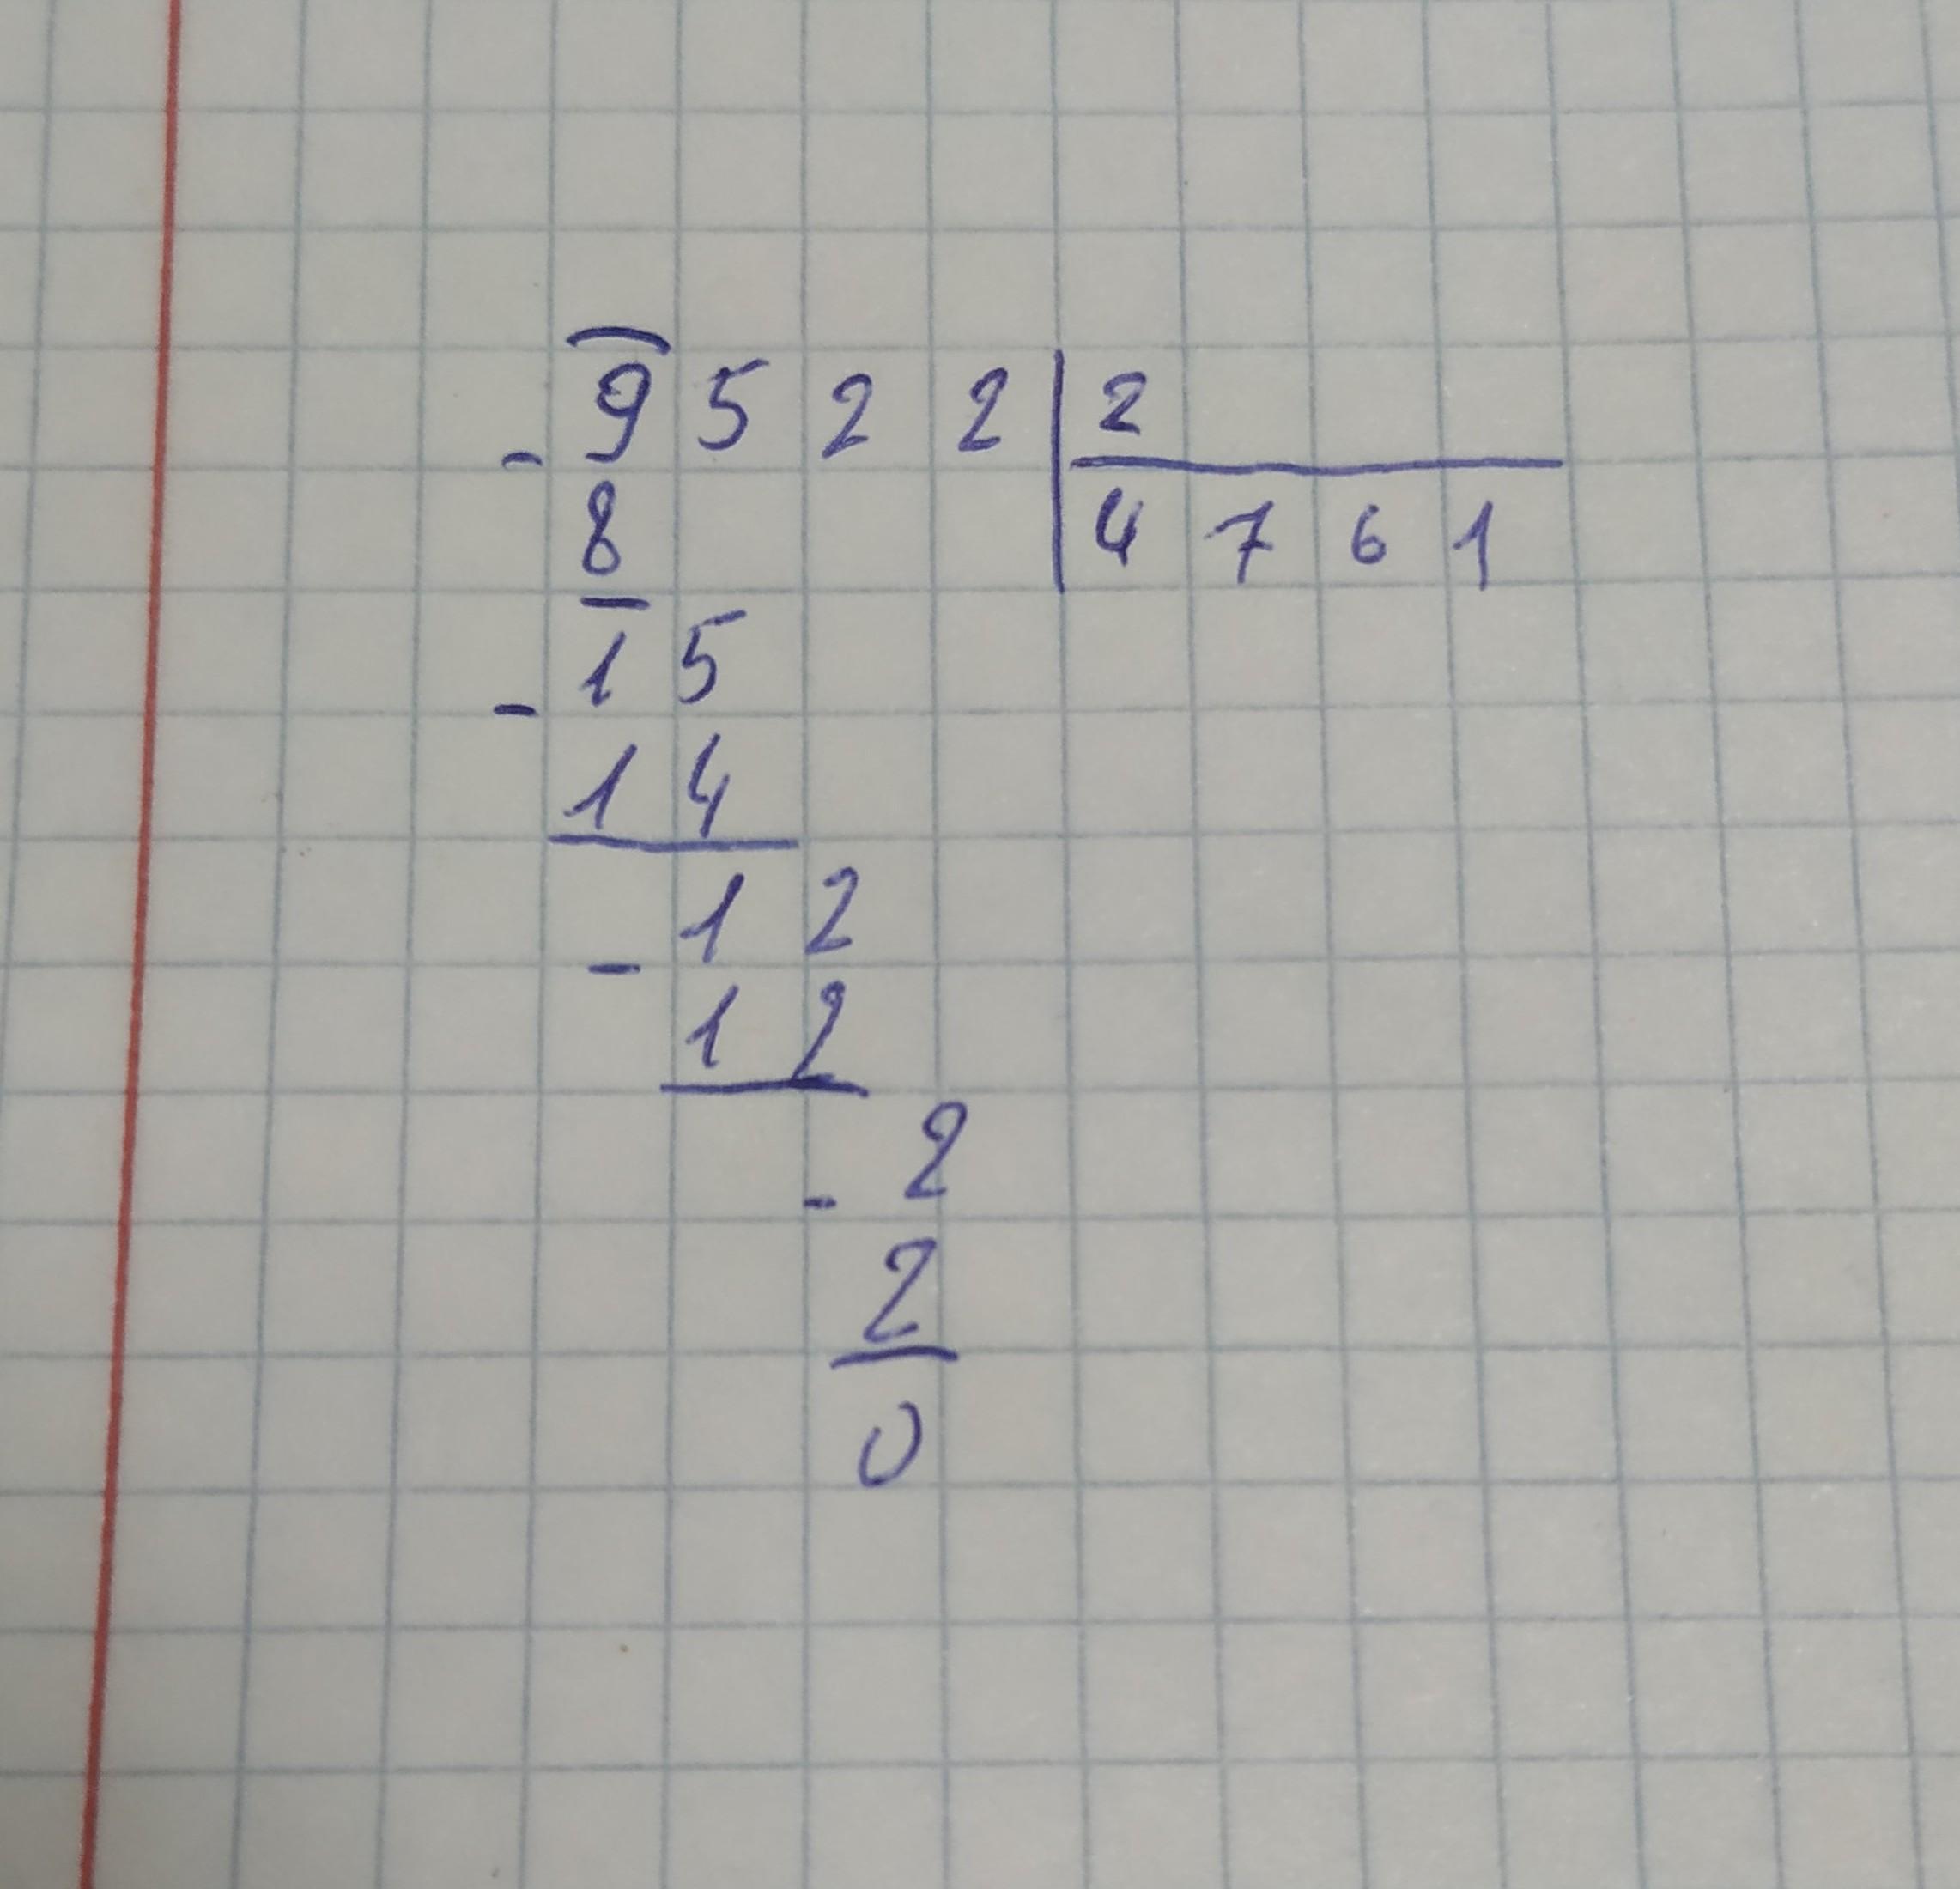 - 9 5 2 2 | 2
8 | 4 7 6 1
- 1 5
1 4
- 1 2
1 2
- 2
2
0